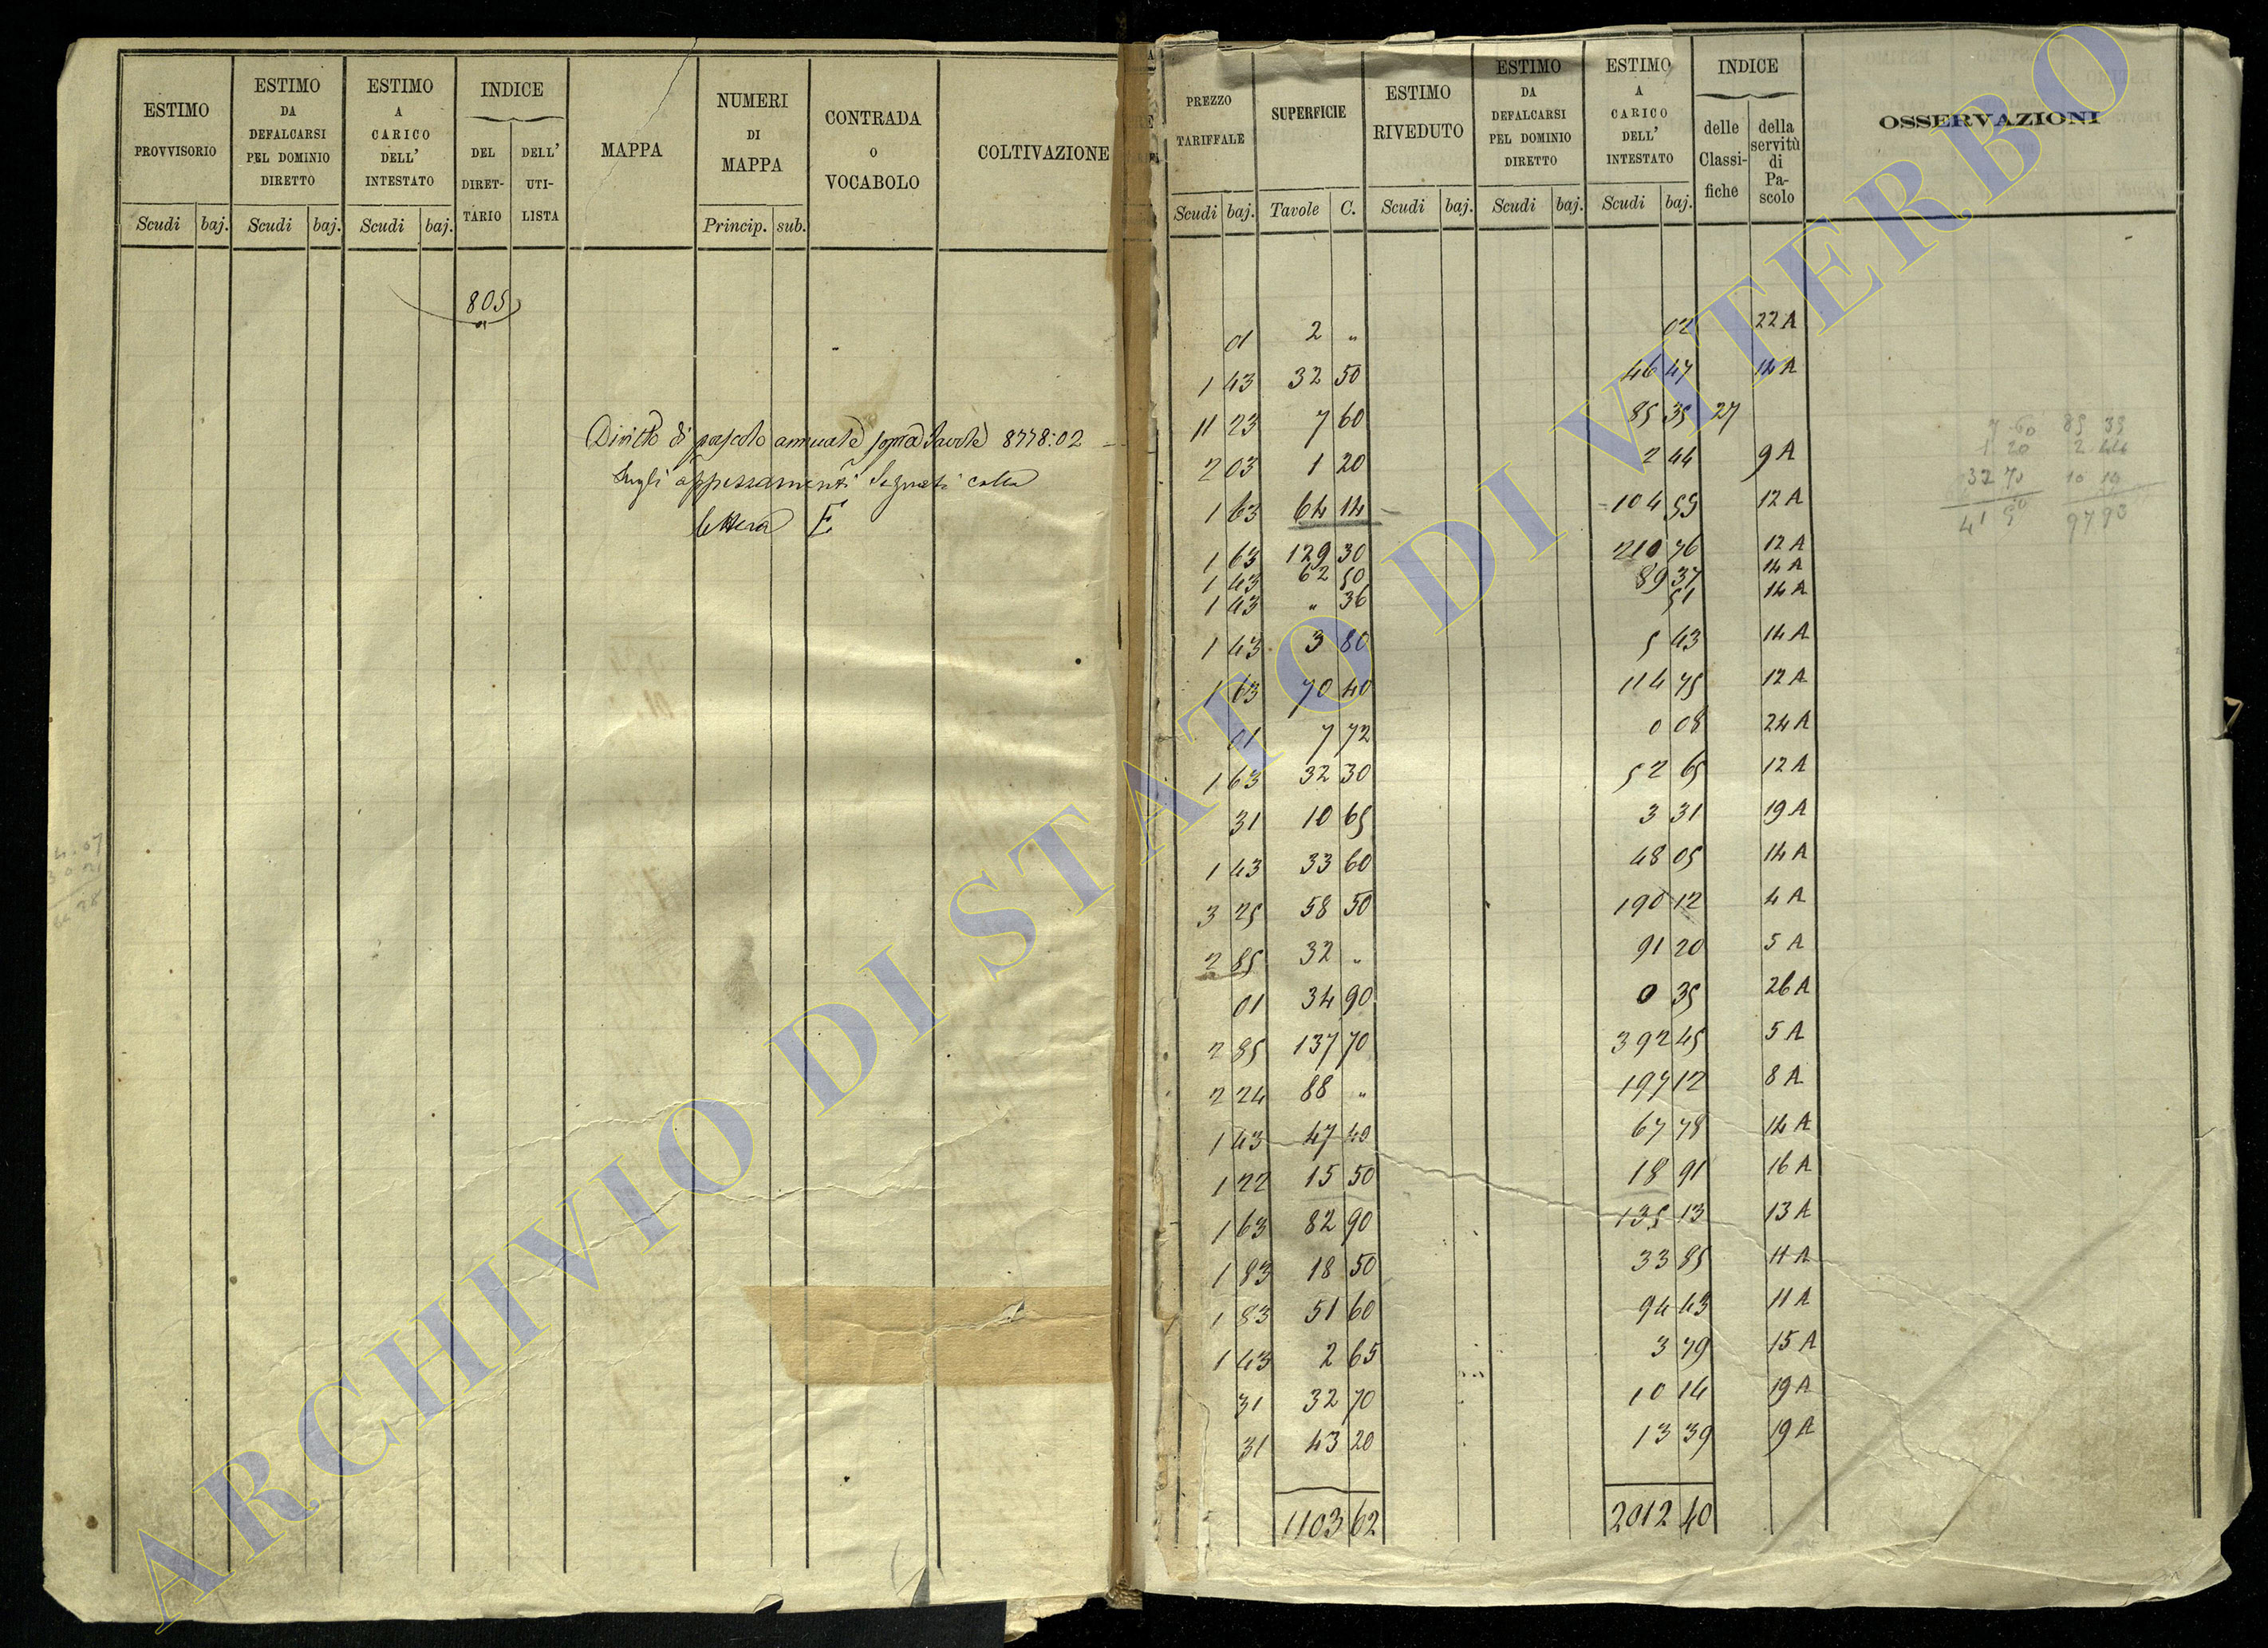 ESTIMO PROVVISORIO
ESTIMO DA DEFALCARSI PEL DOMINIO DIRETTO
ESTIMO A CARICO DELL' INTESTATO
INDICE
DEL DIRET- TARIO
DELL' UTI- LISTA
MAPPA
NUMERI DI MAPPA
CONTRADA O VOCABOLO
COLTIVAZIONE
Scudi baj. Scudi baj. Scudi baj. Princip. sub.
805
Diritto di pascolo annuale sopra Tavole 8778:02
Sugli appezzamenti segnati colla
lettera E
PREZZO TARIFFALE
SUPERFICIE
ESTIMO RIVEDUTO
ESTIMO DA DEFALCARSI PEL DOMINIO DIRETTO
ESTIMO A CARICO DELL' INTESTATO
INDICE
delle Classi- fiche
della servitù di Pa- scolo
OSSERVAZIONI
Scudi baj. Tavole C. Scudi baj. Scudi baj. Scudi baj.
01 2 " 02 22 A
1 43 32 50 46 47 14 A
11 23 7 60 85 35 27
2 03 1 20 2 44 9 A
1 63 64 14 104 55 12 A
1 63 129 30 210 76 12 A
1 43 62 50 89 37 14 A
1 43 " 36 51 14 A
1 43 3 80 5 43 14 A
1 63 70 40 114 75 12 A
01 7 72 0 08 24 A
1 63 32 30 52 65 12 A
31 10 65 3 31 19 A
1 43 33 60 48 05 14 A
3 25 58 50 190 12 4 A
2 85 32 " 91 20 5 A
01 34 90 0 35 26 A
2 85 137 70 392 45 5 A
2 24 88 " 197 12 8 A
1 43 47 40 67 78 14 A
1 22 15 50 18 91 16 A
1 63 82 90 135 13 13 A
1 83 18 50 33 85 11 A
1 83 51 60 94 43 11 A
1 43 2 65 3 79 15 A
31 32 70 10 14 19 A
31 43 20 13 39 19 A
1103 62 2012 40
7 60 85 35
1 20 2 44
32 70 10 14
41 50 97 93
ARCHIVIO DI STATO DI VITERBO